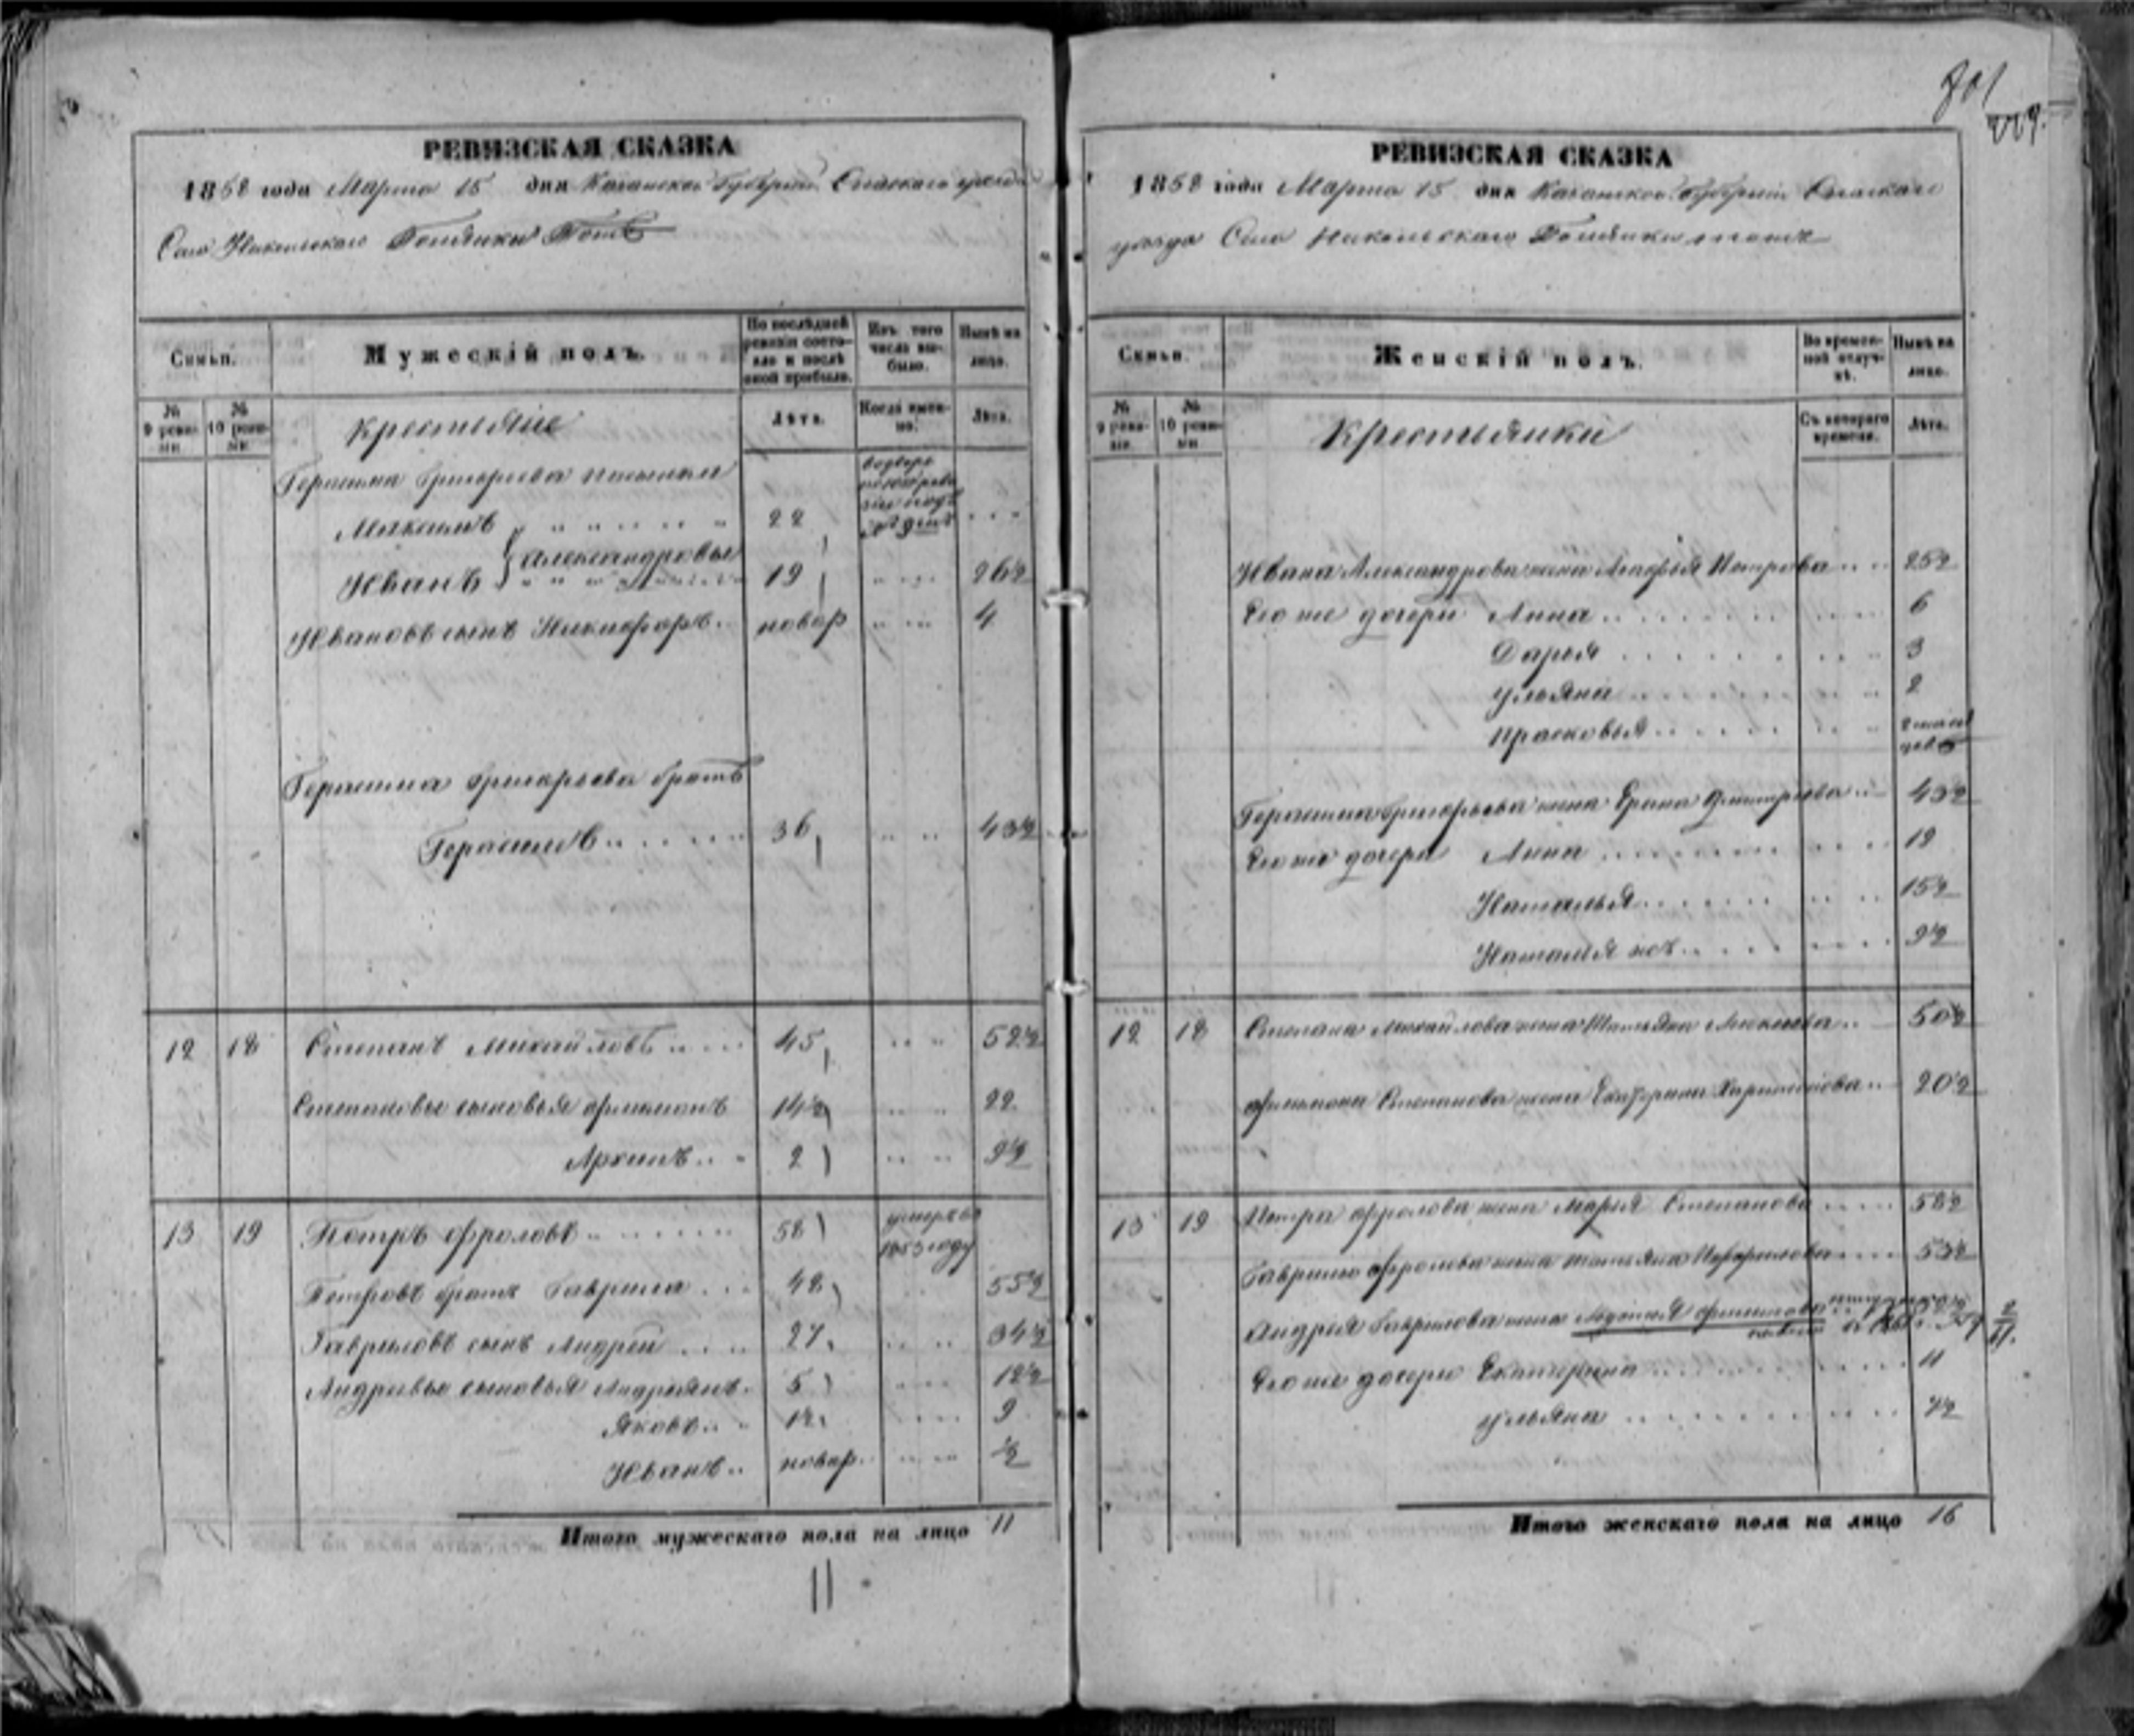 РЕВИЗСКАЯ СКАЗКА
1858 года Марта 15 дня Казанской Губернии Спаскаго уезда
Села Никольскаго
Семьи.
Мужескій полъ.
По послѣдней ревизіи состояло и послѣ оной прибыло.
Изъ того числа выбыло.
Нынѣ на лицо.
№ 9 ревизіи.
№ 10 ревизіи.
крестьяне
Лѣта.
Когда именно.
Лѣта.
Герасима Григорьева
Максимъ 22
Александровы
Иванъ 19 26½
Ивановъ сынъ Никифоръ новор 4
Герасима Григорьева братъ
Герасимъ 36 43½
12 18 Степанъ Михайловъ 45 52½
Степановы сыновья Филимонъ 14½ 22
Архипъ 2 9½
13 19 Петръ Фроловъ 58 умеръ въ 1853 году
Петровъ братъ Гаврила 48 55½
Гавриловъ сынъ Андрей 27 34½
Андреевы сыновья Андреянъ 5 12½
Яковъ 9
Иванъ новор. ½
Итого мужескаго пола на лицо 11
11
801
РЕВИЗСКАЯ СКАЗКА
1858 года Марта 15 дня Казанской Губернии Спаскаго
уезда Села Никольскаго
Семьи.
Женскій полъ.
Во временной отлучкѣ.
Нынѣ на лицо.
№ 9 ревизіи.
№ 10 ревизіи
Крестьянки
Съ котораго времени.
Лѣта.
Ивана Александрова жена Петрова 25½
Его же дочери Анна 6
Дарья 3
Ульяна 2
Прасковья
Герасима Григорьева жена Дмитриева 43½
Его же дочери Анна 19
Наталья 15½
Наталья же 9½
12 18 Степана Михайлова жена Татьяна 50½
Филимона Степанова жена Екатерина 20½
13 19 Петра Фролова жена Марья Степанова 58½
Гаврилы Фролова жена Татьяна 53½
Андрея Гаврилова жена
Его же дочери Екатерина 11
Ульяна 7½
Итого женскаго пола на лицо 16